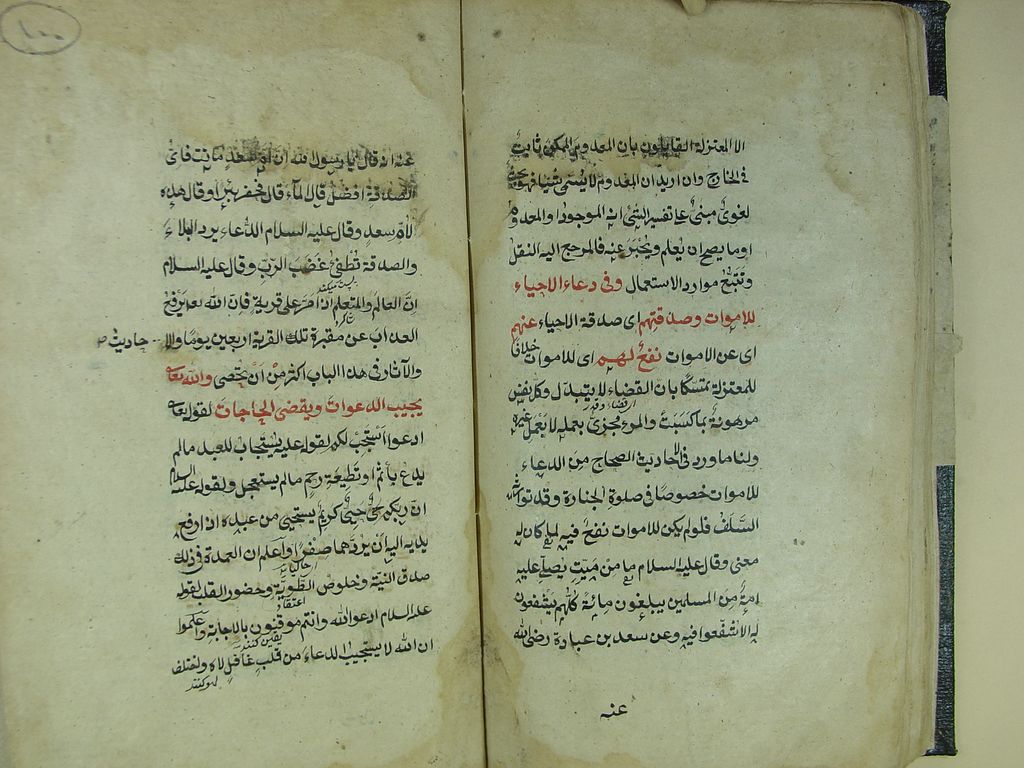 الا المعتزلة القايلون بان المعدوم الممكن ثابت
في الخارج وان اريد ان المعدوم لا يسمى شيئا فهو بحث
لغوي مبني على تفسير الشيئ انه الموجود او المعدوم
او ما يصح ان يعلم ويخبر عنه فالمرجع اليه النقل
وتتبع موارد الاستعمال وفي دعاء الاحياء
للاموات وصدقتهم اى صدقة الاحياء عنهم
اى عن الاموات نفع لهم اى للاموات خلافا
للمعتزلة تمسكا بان القضاء لا يتبدل وكل نفس
ارقضا وقدر
مرهونة بما كسبت والمرء مجزى بعمله لا بعمل غيره
ولنا ما ورد في الاحاديث الصحاح من الدعاء
للاموات خصوصا في صلوة الجنازة وقد توارثه
السلف فلو لم يكن للاموات نفع فيه لما كان له
معنى وقال عليه السلام ما من ميت يصلى عليه
امة من المسلمين يبلغون مائة كلهم يشفعون
له الا شفعوا فيه وعن سعد بن عبادة رضى الله
عنه
١٠٠
عنه انه قال يا رسول الله ان ام سعد ماتت فاى
الصدقة افضل قال الماء قال فحفر بئرا وقال هذه
لام سعد وقال عليه السلام الدعاء يرد البلاء
والصدقة تطفئ غضب الرب وقال عليه السلام
ان العالم والمتعلم اذا مرا على قرية فان الله تعا يرفع
العذاب عن مقبرة تلك القرية اربعين يوما والا
حاديث
والآثار في هذا الباب اكثر من ان يحصى والله تعا
يجيب الدعوات ويقضي الحاجات لقوله تعا
ادعوا استجب لكم لقوله عليه يستجاب للعبد مالم
يدع باثم او قطيعة رحم مالم يستعجل ولقوله عليه السلام
ان ربكم حي كريم يستحيي من عبده اذا رفع
يديه اليه ان يردهما صفرا واعلم ان العمدة في ذلك
صدق النية وخلوص الطوية وحضور القلب لقوله
اعتقاد
عليه السلام ادعوا الله وانتم موقنون بالاجابة واعلموا
يقين كننده
ان الله لا يستجيب الدعاء من قلب غافل لاه واختلف